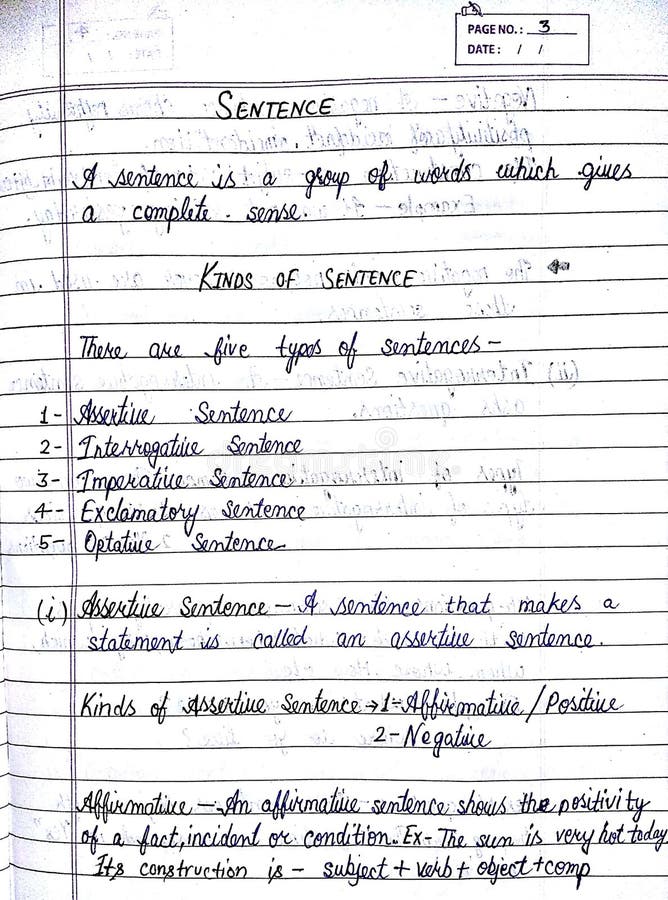 PAGE NO.: 3
DATE: / /
SENTENCE
A sentence is a group of words which gives
a complete sense.
KINDS OF SENTENCE
There are five types of sentences -
1- Assertive Sentence
2- Interrogative Sentence
3- Imperative Sentence
4- Exclamatory Sentence
5- Optative Sentence
(i) Assertive Sentence - A sentence that makes a
statement is called an assertive sentence.
Kinds of Assertive Sentence → 1- Affirmative / Positive
2- Negative
Affirmative - An affirmative sentence shows the positivity
of a fact, incident or condition. Ex- The sun is very hot today
Its construction is - subject + verb + object + comp